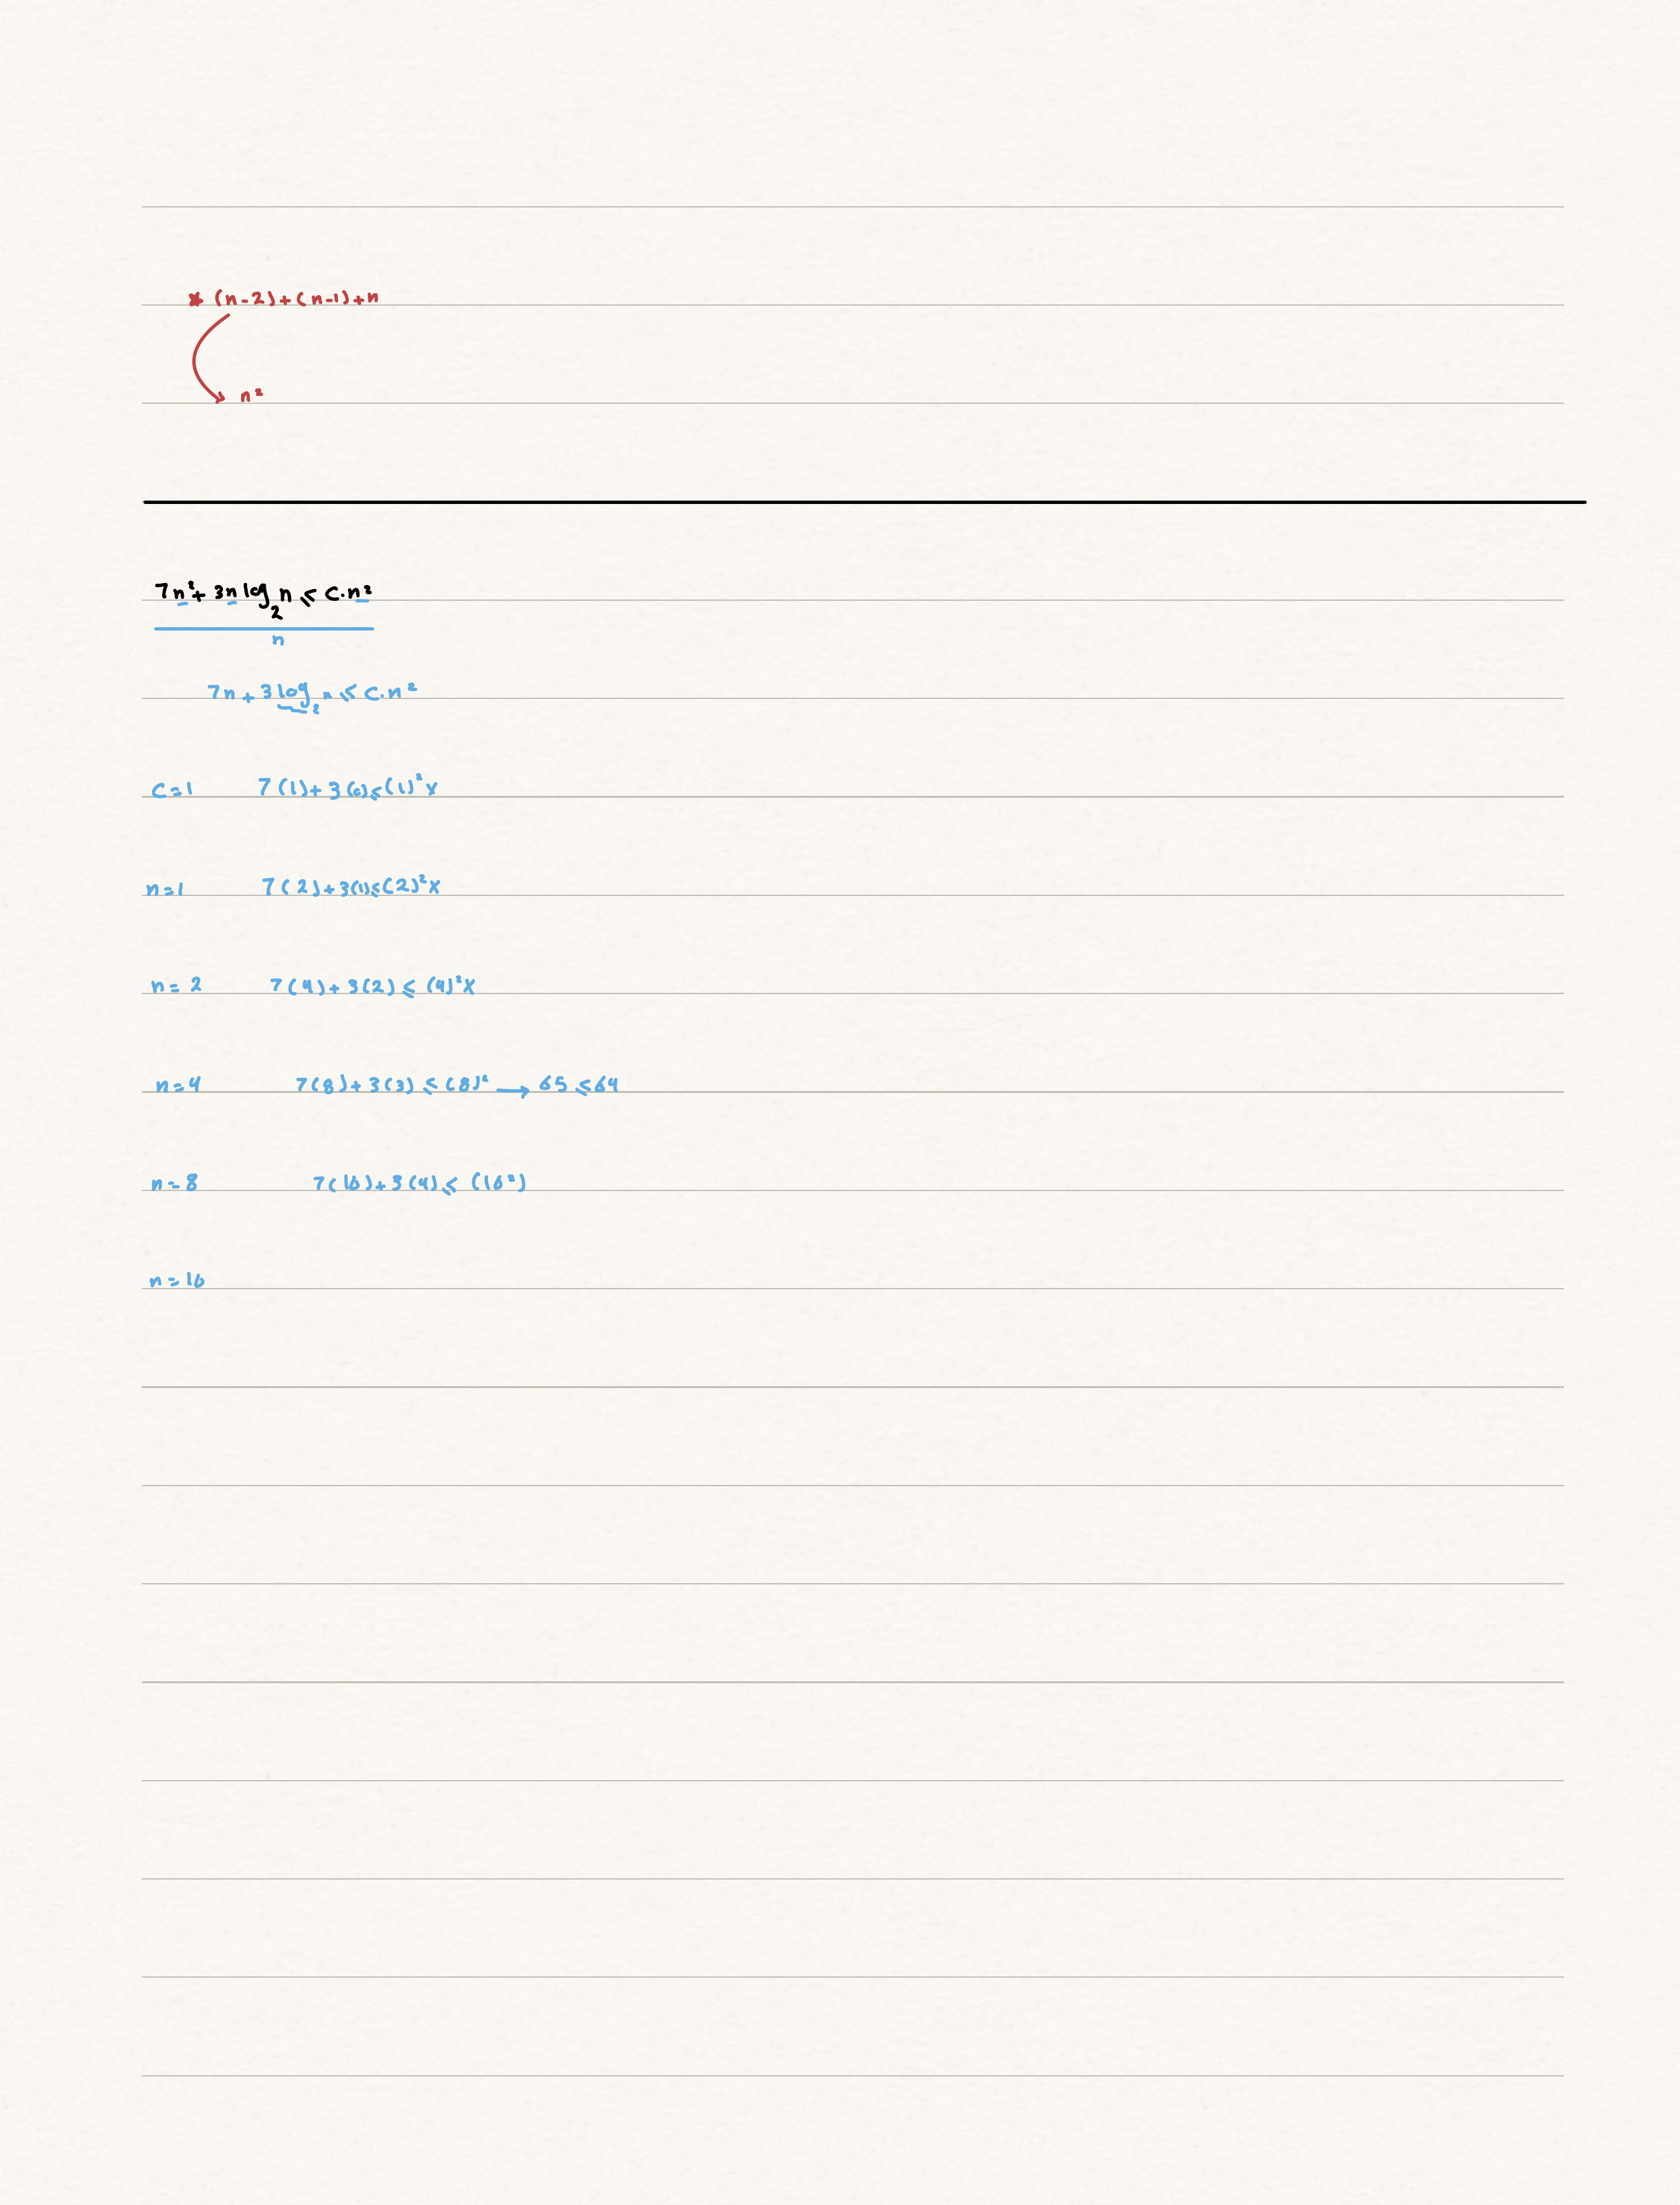 * (n-2)+(n-1)+n
n²
7n²+3n log₂ n ≤ C.n²
n
7n+3 log₂ n ≤ C.n²
C=1 7(1)+3(0)≤(1)² x
n=1 7(2)+3(1)≤(2)² x
n=2 7(4)+3(2) ≤ (4)² x
n=4 7(8)+3(3) ≤ (8)² → 65 ≤ 64
n=8 7(16)+3(4) ≤ (16²)
n=16